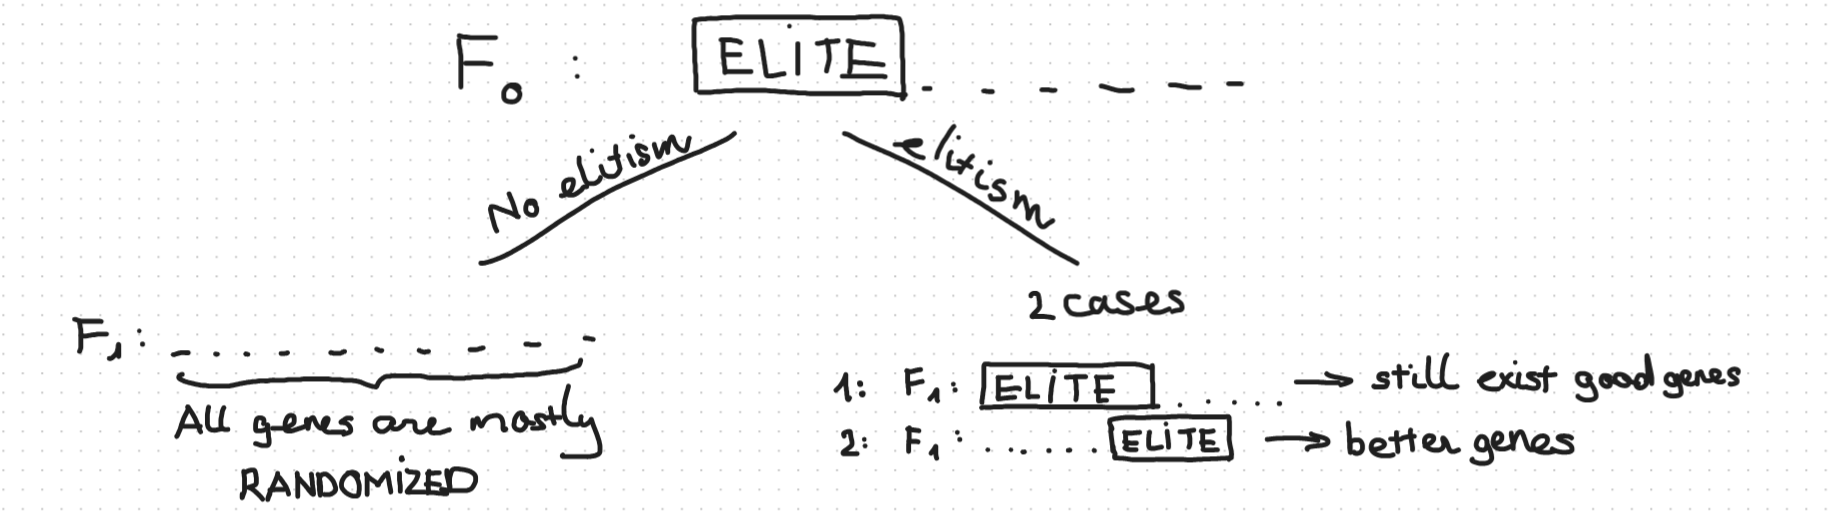 F0 : ELITE - - - - - -
No elitism
elitism
2 cases
F1 : - - - - - - - - - -
All genes are mostly
RANDOMIZED
1: F1 : ELITE . . . . . → still exist good genes
2: F1 : . . . . . . ELITE → better genes